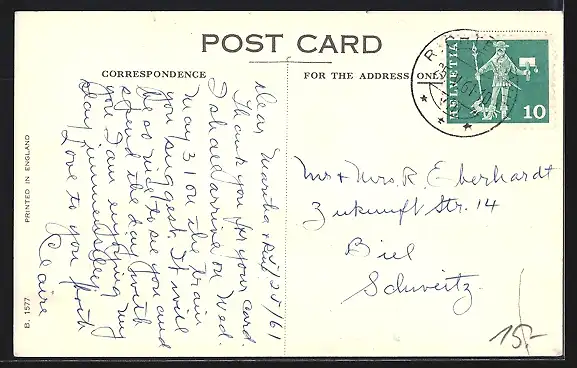 POST CARD
CORRESPONDENCE
FOR THE ADDRESS ONLY
HELVETIA
10
PRINTED IN ENGLAND
B. 1577
Dear Martha &
Thank you for your card.
I shall arrive on Wed.
May 31 on the train
you suggest. It will
be so nice to see you and
spend the day with
you. I am enjoying my
stay immensely.
Love to you both
Claire
Mr + Mrs. R. Eberhardt
Zukunft Str. 14
Biel
Schweitz.
15,-